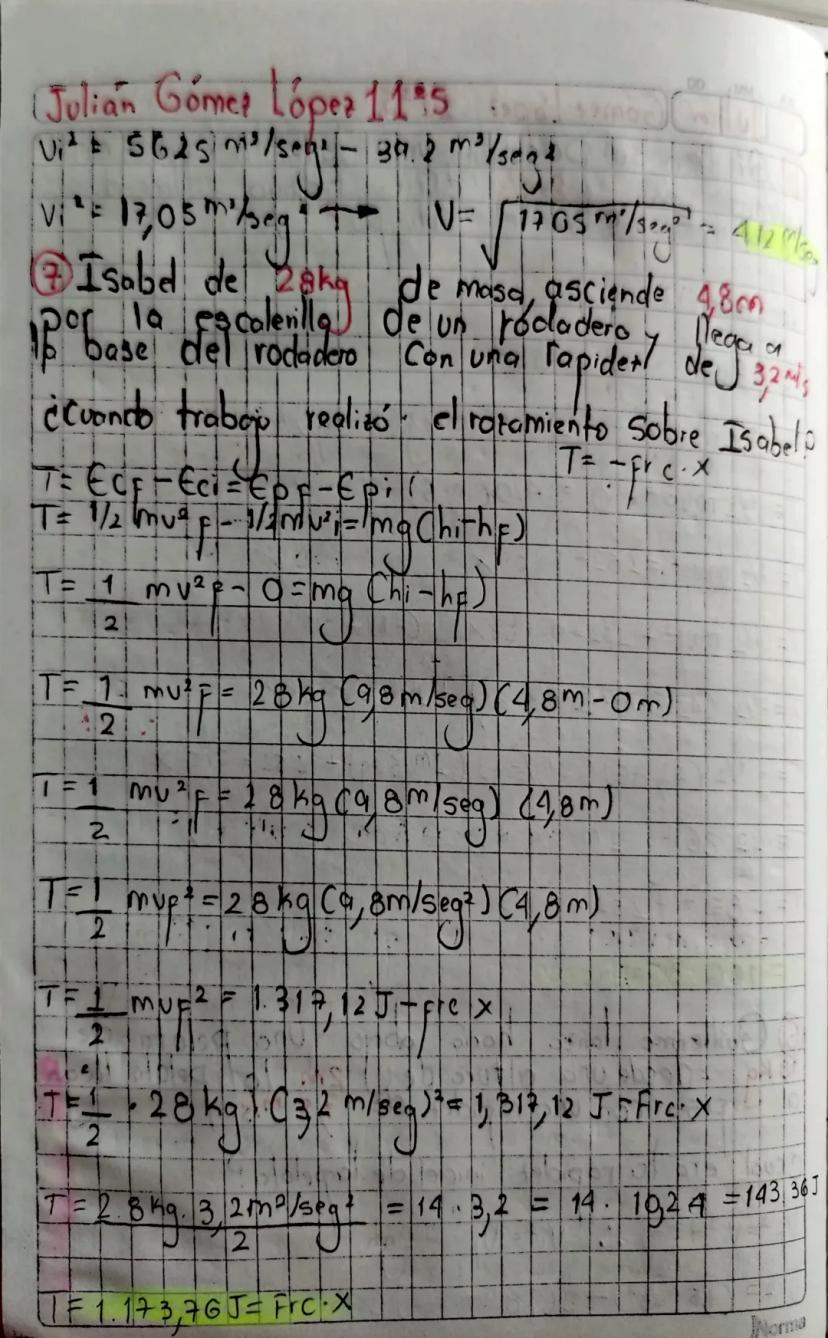 Julián Gómez López 11°5
Vi² = 56,25 m²/seg² - 39.2 m²/seg²
Vi² = 17,05 m²/seg² → V= √17,05 m²/seg² = 4,12 m/seg
⑦ Isabel de 28kg de masa, asciende 4,8cm
por la escalerilla de un rodadero y llega a
la base del rodadero con una rapidez de 3,2 m/s
¿Cuando trabajo realizó el rozamiento sobre Isabel?
T= -frc·x
T= Ecf-Eci=Epf-Epi
T= 1/2 mv²f - 1/2mv²i=mg(hi-hf)
T= 1/2 mv²f- 0=mg (hi-hf)
T= 1/2 mv²f= 28kg (9,8m/seg)(4,8m-0m)
T=1/2 mv²f=28kg(9,8m/seg) (4,8m)
T=1/2 mvf²=28kg(9,8m/seg²)(4,8m)
T=1/2 mvf² = 1.317,12J-frc x
T=1/2 · 28kg · (3,2 m/seg)²= 1,317,12 J=Frc·x
T=28kg·3,2m²/seg²/2 = 14·3,2 = 14·10,24 =143,36J
T=1.173,76J=Frc·X
Norma